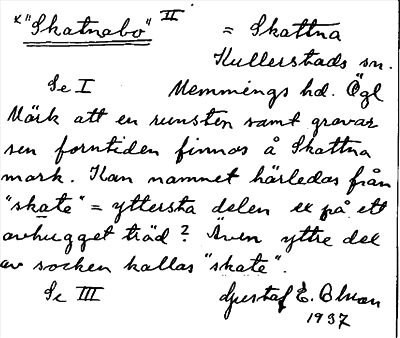 x "Skatnabo" II = Skattna
Kullerstads sn.
Se I Memmings hd. Ögl
Märk att en runsten samt gravar
sen forntiden finnas å Skattna
mark. Kan namnet härledas från
"skate" = yttersta delen ex på ett
avhugget träd? Även yttre del
av socken kallas "skate".
Se III Gustaf E.
1937